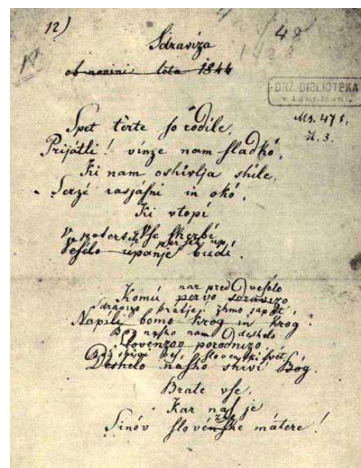 12)
48
Sdravíza
ob novini léta 1844
DRŽ. BIBLIOTEKA
Ms. 471,
Spet térte so rodíle,
Prijátli! vínze nam sladkó,
Ki nam oshívlja shíle,
Serzé rasjásni in okó,
Ki vtopi
Vse skerbí
Veselo upanje budí.
Komú nar pred veselo
pervo sdravizo
Sdravizo bratje! zhmo sapét',
Napíli bomo krog in krog?
nasho nam deshelo
Slovenzov porodnizo
Bog shivi vés Slovenski svét
Deshelo nasho shivi Bog,
Brate vse,
Kar nas je
Sinóv slovénske mátere!